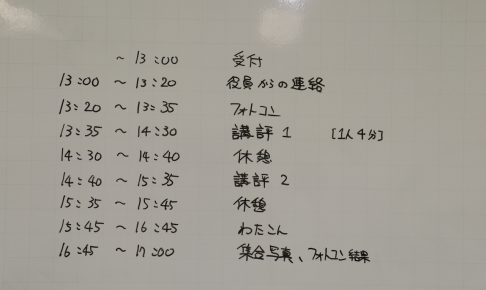 ～ 13:00 受付
13:00 ～ 13:20 役員からの連絡
13:20 ～ 13:35 フォトコン
13:35 ～ 14:30 講評 1 [1人4分]
14:30 ～ 14:40 休憩
14:40 ～ 15:35 講評 2
15:35 ～ 15:45 休憩
15:45 ～ 16:45 わたこん
16:45 ～ 17:00 集合写真、フォトコン結果